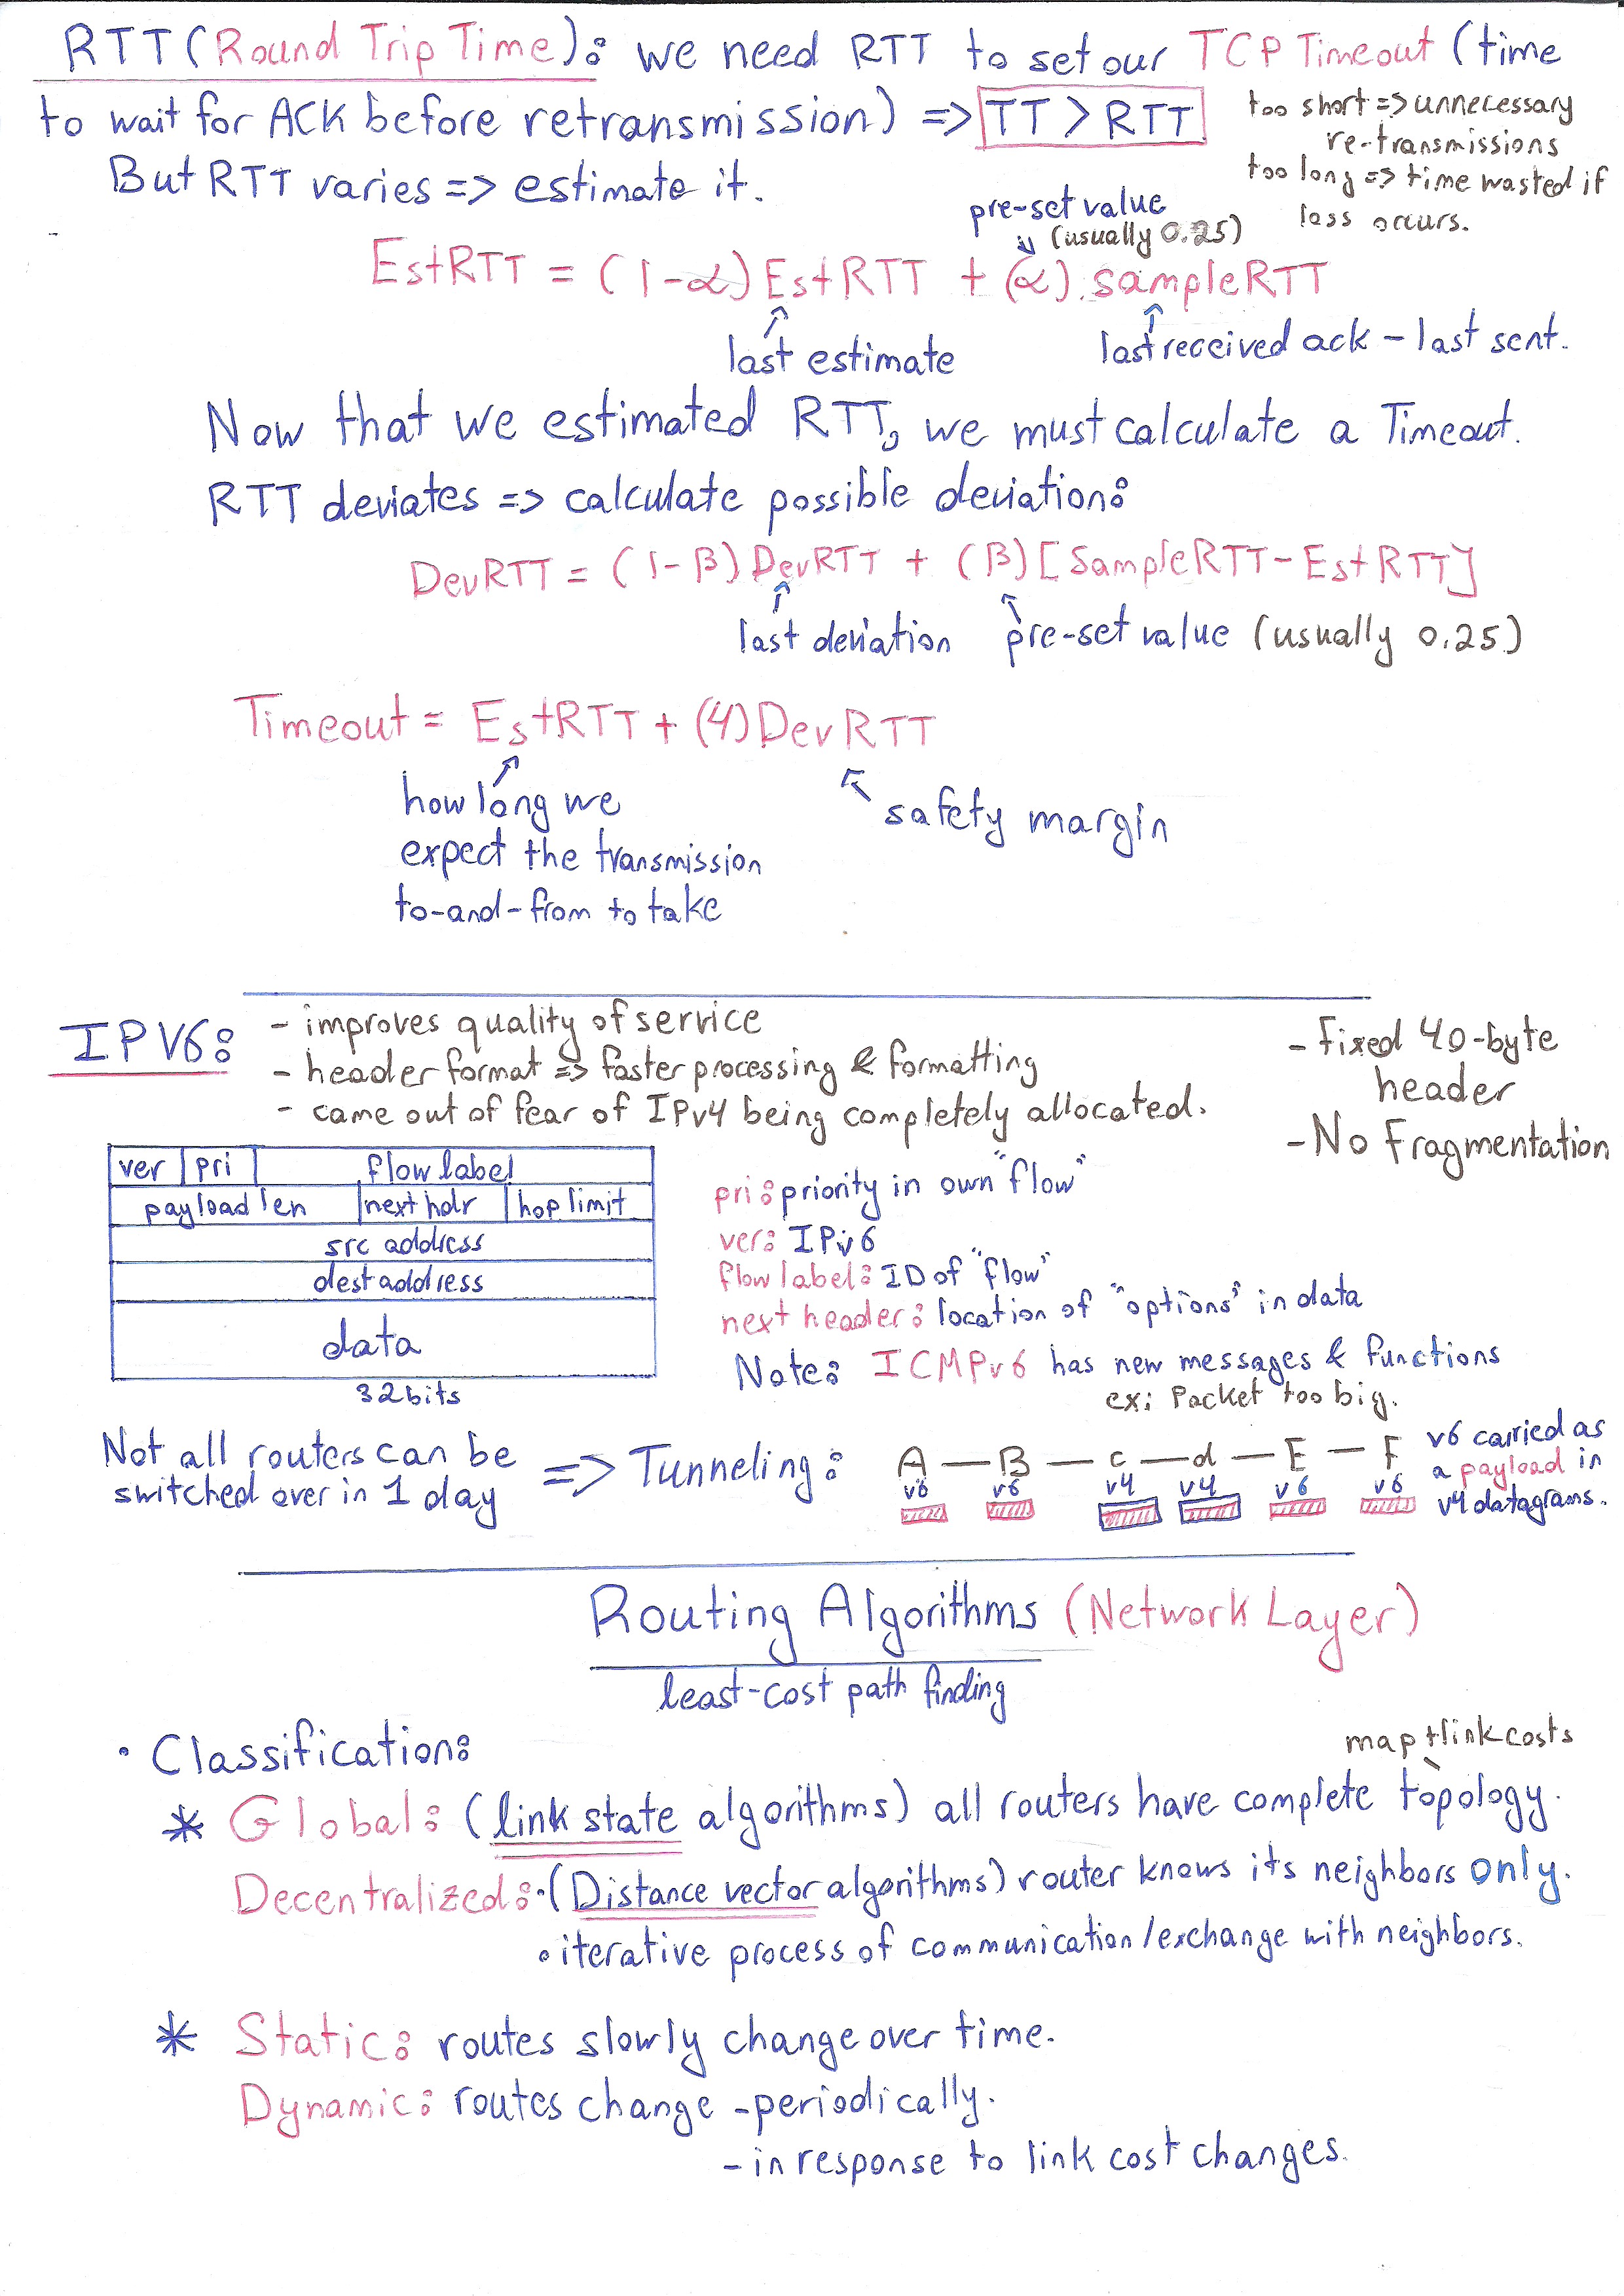 RTT (Round Trip Time): we need RTT to set our TCP Timeout (time
to wait for ACK before retransmission) => TT > RTT
too short => unnecessary
re-transmissions
too long => time wasted if
loss occurs.
But RTT varies => estimate it.
pre-set value
(usually 0.25)
EstRTT = (1-α) EstRTT + (α). sampleRTT
last estimate
last received ack - last sent.
Now that we estimated RTT, we must calculate a Timeout.
RTT deviates => calculate possible deviation:
DevRTT = (1-β) DevRTT + (β) [SampleRTT - EstRTT]
last deviation
pre-set value (usually 0.25)
Timeout = EstRTT + (4) DevRTT
how long we
expect the transmission
to-and-from to take
safety margin
IPV6:
- improves quality of service
- header format => faster processing & formatting
- came out of fear of IPv4 being completely allocated.
- Fixed 40-byte
header
- No Fragmentation
ver pri flow label
payload len next hdr hop limit
src address
dest address
data
32 bits
pri: priority in own "flow"
ver: IPv6
flow label: ID of "flow"
next header: location of "options" in data
Note: ICMPv6 has new messages & functions
ex: Packet too big.
Not all routers can be
switched over in 1 day
=> Tunneling:
A — B — c — d — E — F
v6 v6 v4 v4 v6 v6
v6 carried as
a payload in
v4 datagrams.
Routing Algorithms (Network Layer)
least-cost path finding
• Classification:
map + link costs
* Global: (link state algorithms) all routers have complete topology.
Decentralized: • (Distance vector algorithms) router knows its neighbors only.
• iterative process of communication/exchange with neighbors.
* Static: routes slowly change over time.
Dynamic: routes change - periodically.
- in response to link cost changes.